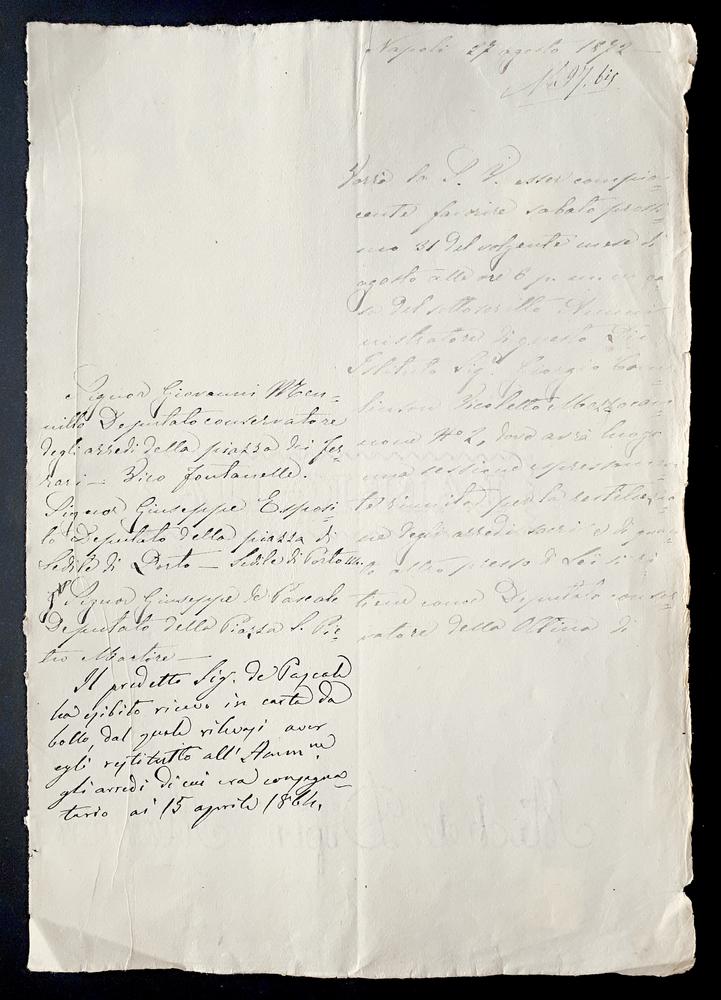 Napoli 27 agosto 1872 —
N. 97. bis
Vorrà la S. V. esser compia=
cente favorire sabato prossi=
mo 31 del volgente mese di
agosto alle ore 6 p. m. in ca=
sa del sottoscritto Ammi=
nistratore di questo Pio
Istituto Sig. Giorgio
Vicoletto Mezzocan=
none N° 2, dove avrà luogo
una sessione espressamen=
te riunita per la restituzio=
ne degli arredi sacri e di quan=
to altro presso di Lei si ri=
tiene come Deputato conser=
vatore della Ottina di
Signor Giovanni Men=
nillo Deputato conservatore
degli arredi della piazza dei fer=
rari — Vico fontanelle.
Signor Giuseppe Esposi=
to Deputato della piazza di
Sedile di Porto — Sedile di Porto
Signor Giuseppe de Pascale
Deputato della Piazza S. Pie=
tro Martire —
Il predetto Sig. de Pascale
ha esibito ricevo in carta da
bollo, dal quale rilevasi aver
egli restituito all' Ammne
gli arredi di cui era consegna=
tario ai 15 aprile 1864.